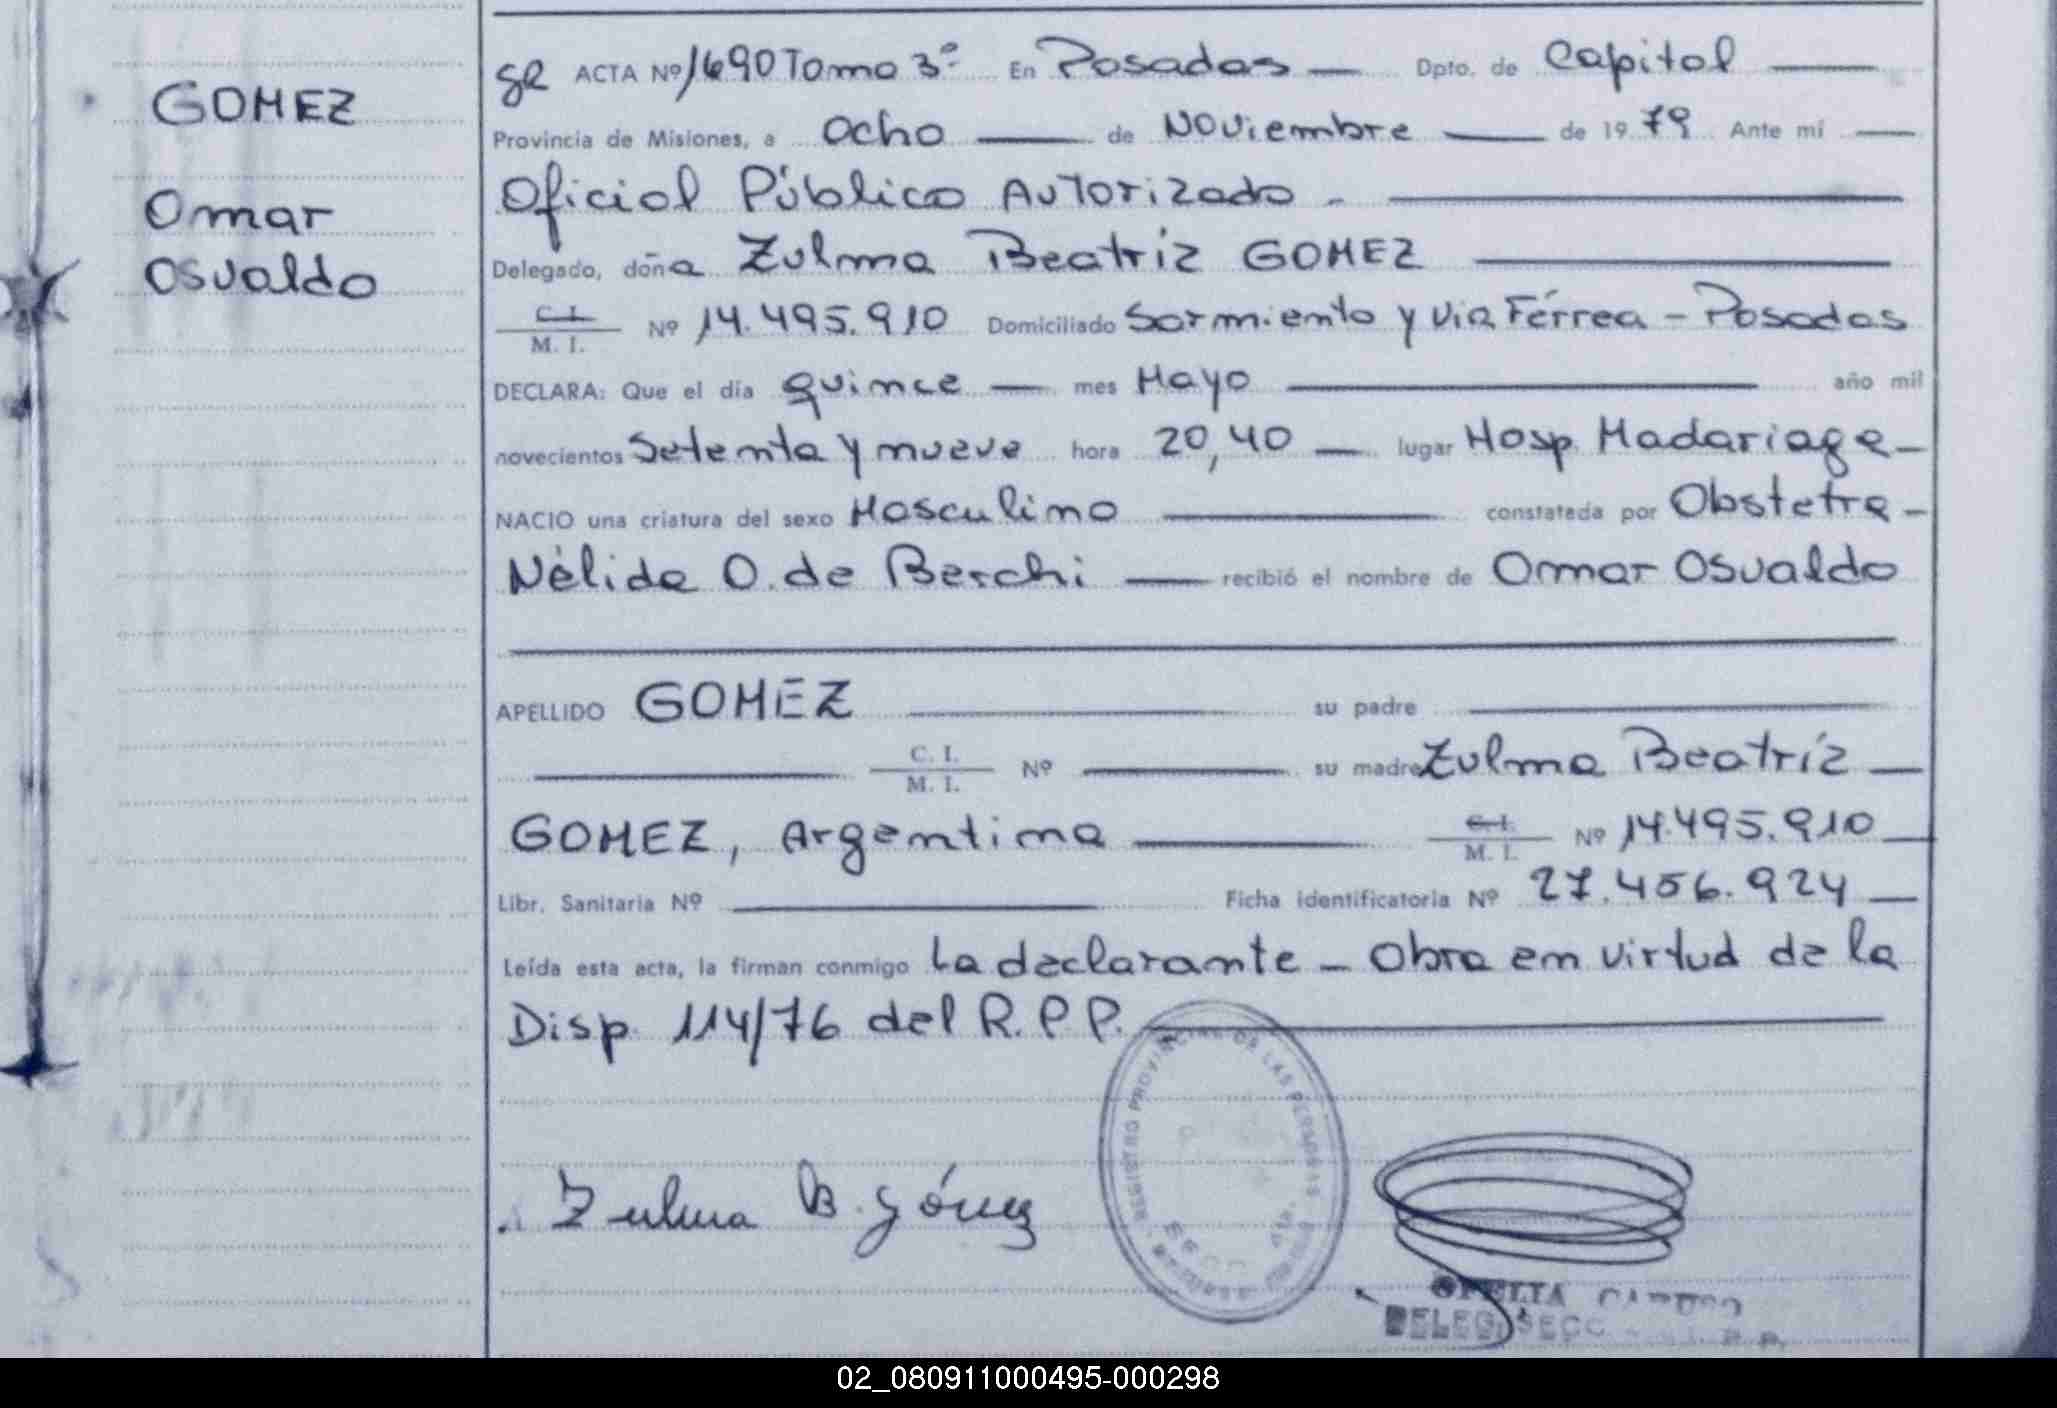 GOMEZ
Omar
Osvaldo
ACTA Nº 1690 Tomo 3º En Posadas — Dpto. de Capital —
Provincia de Misiones, a Ocho — de Noviembre — de 1979 Ante mí —
Oficial Público Autorizado. —
Delegado, doña Zulma Beatríz GOMEZ —
C. I. / M. I. Nº 14.495.910 Domiciliado Sarmiento y Via Férrea - Posadas
DECLARA: Que el día quince — mes Mayo — año mil
novecientos Setenta y nueve hora 20,40 — lugar Hosp. Madariaga —
NACIO una criatura del sexo Masculino — constatada por Obstetra —
Nélida O. de Berchi — recibió el nombre de Omar Osvaldo
APELLIDO GOMEZ — su padre —
— C. I. / M. I. Nº — su madre Zulma Beatríz —
GOMEZ, Argentina — C. I. / M. I. Nº 14.495.910 —
Libr. Sanitaria Nº — Ficha identificatoria Nº 27.456.924 —
Leída esta acta, la firman conmigo La declarante - Obra en virtud de la
Disp. 114/76 del R.P.P. —
REGISTRO PROVINCIAL DE LAS PERSONAS
Zulma B. Gómez
OFELIA CARDOZO
DELEG. SECC.
02_080911000495-000298